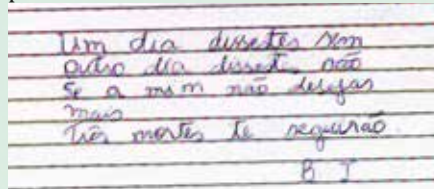 Um dia dissestes sim
outro dia disseste não
Se a mim não desejas
mais
Três mortes te seguirão.
B J